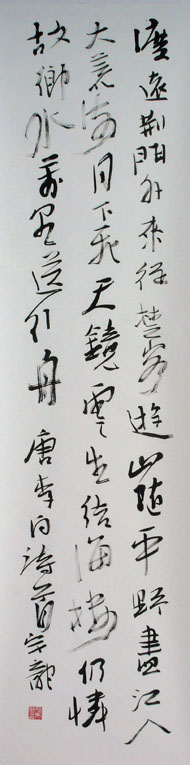 渡遠荊門外來從楚客遊山隨平野盡江入
大荒流月下飛天鏡雲生結海樓仍憐
故鄉水萬里送行舟 唐李白詩首